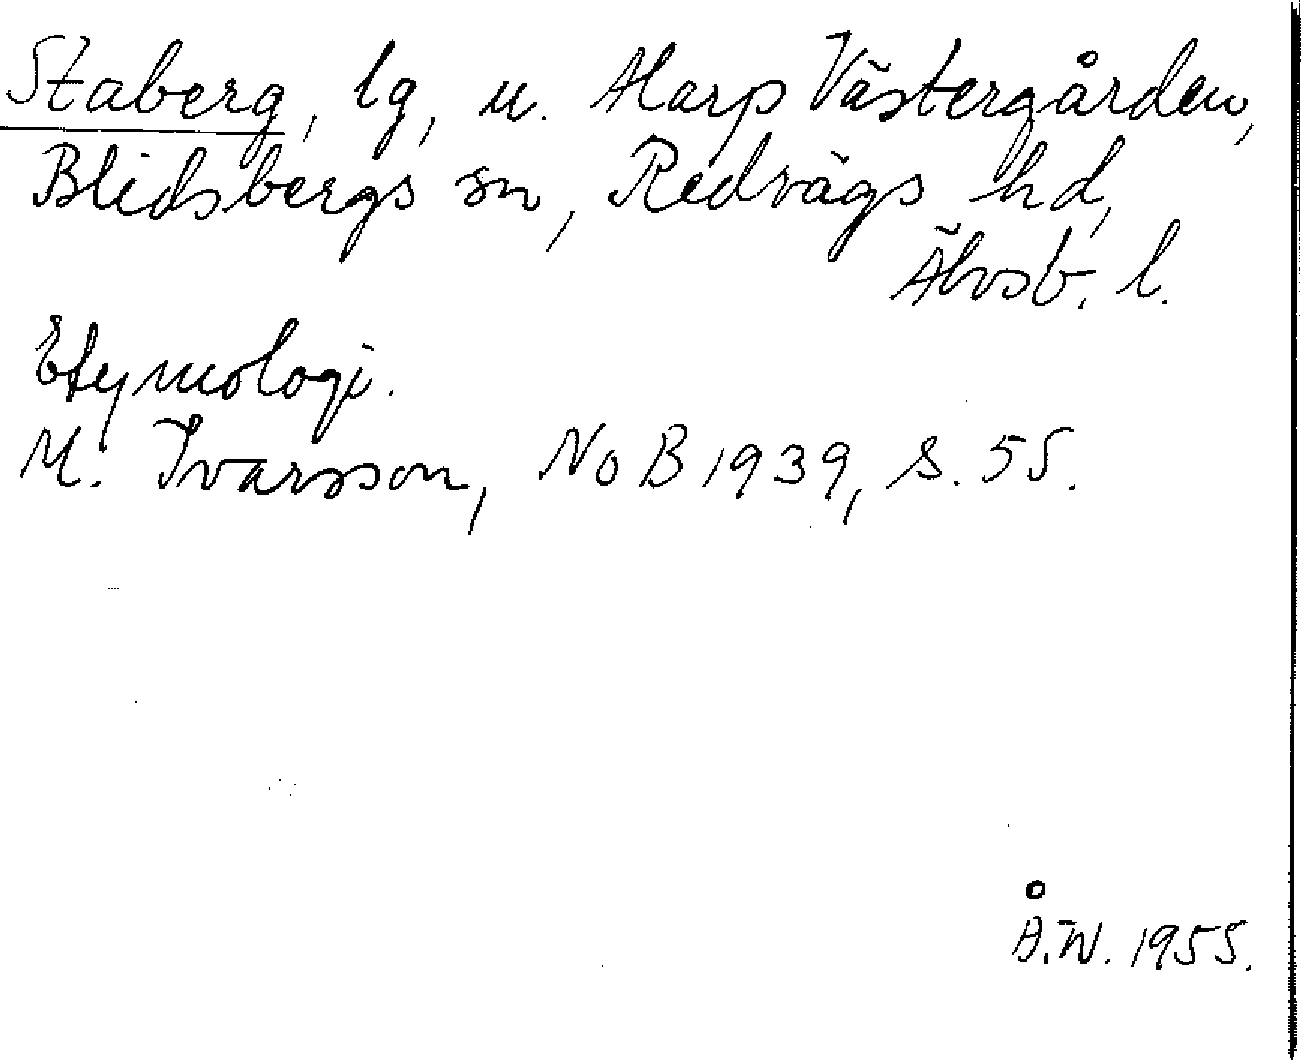 Staberg, lg, u. Harp Västergården,
Blidsbergs sn, Redvägs hd,
Älvsb. l.
Etymologi.
M. Ivarsson, NoB 1939, s. 55.
Å.W. 1955.